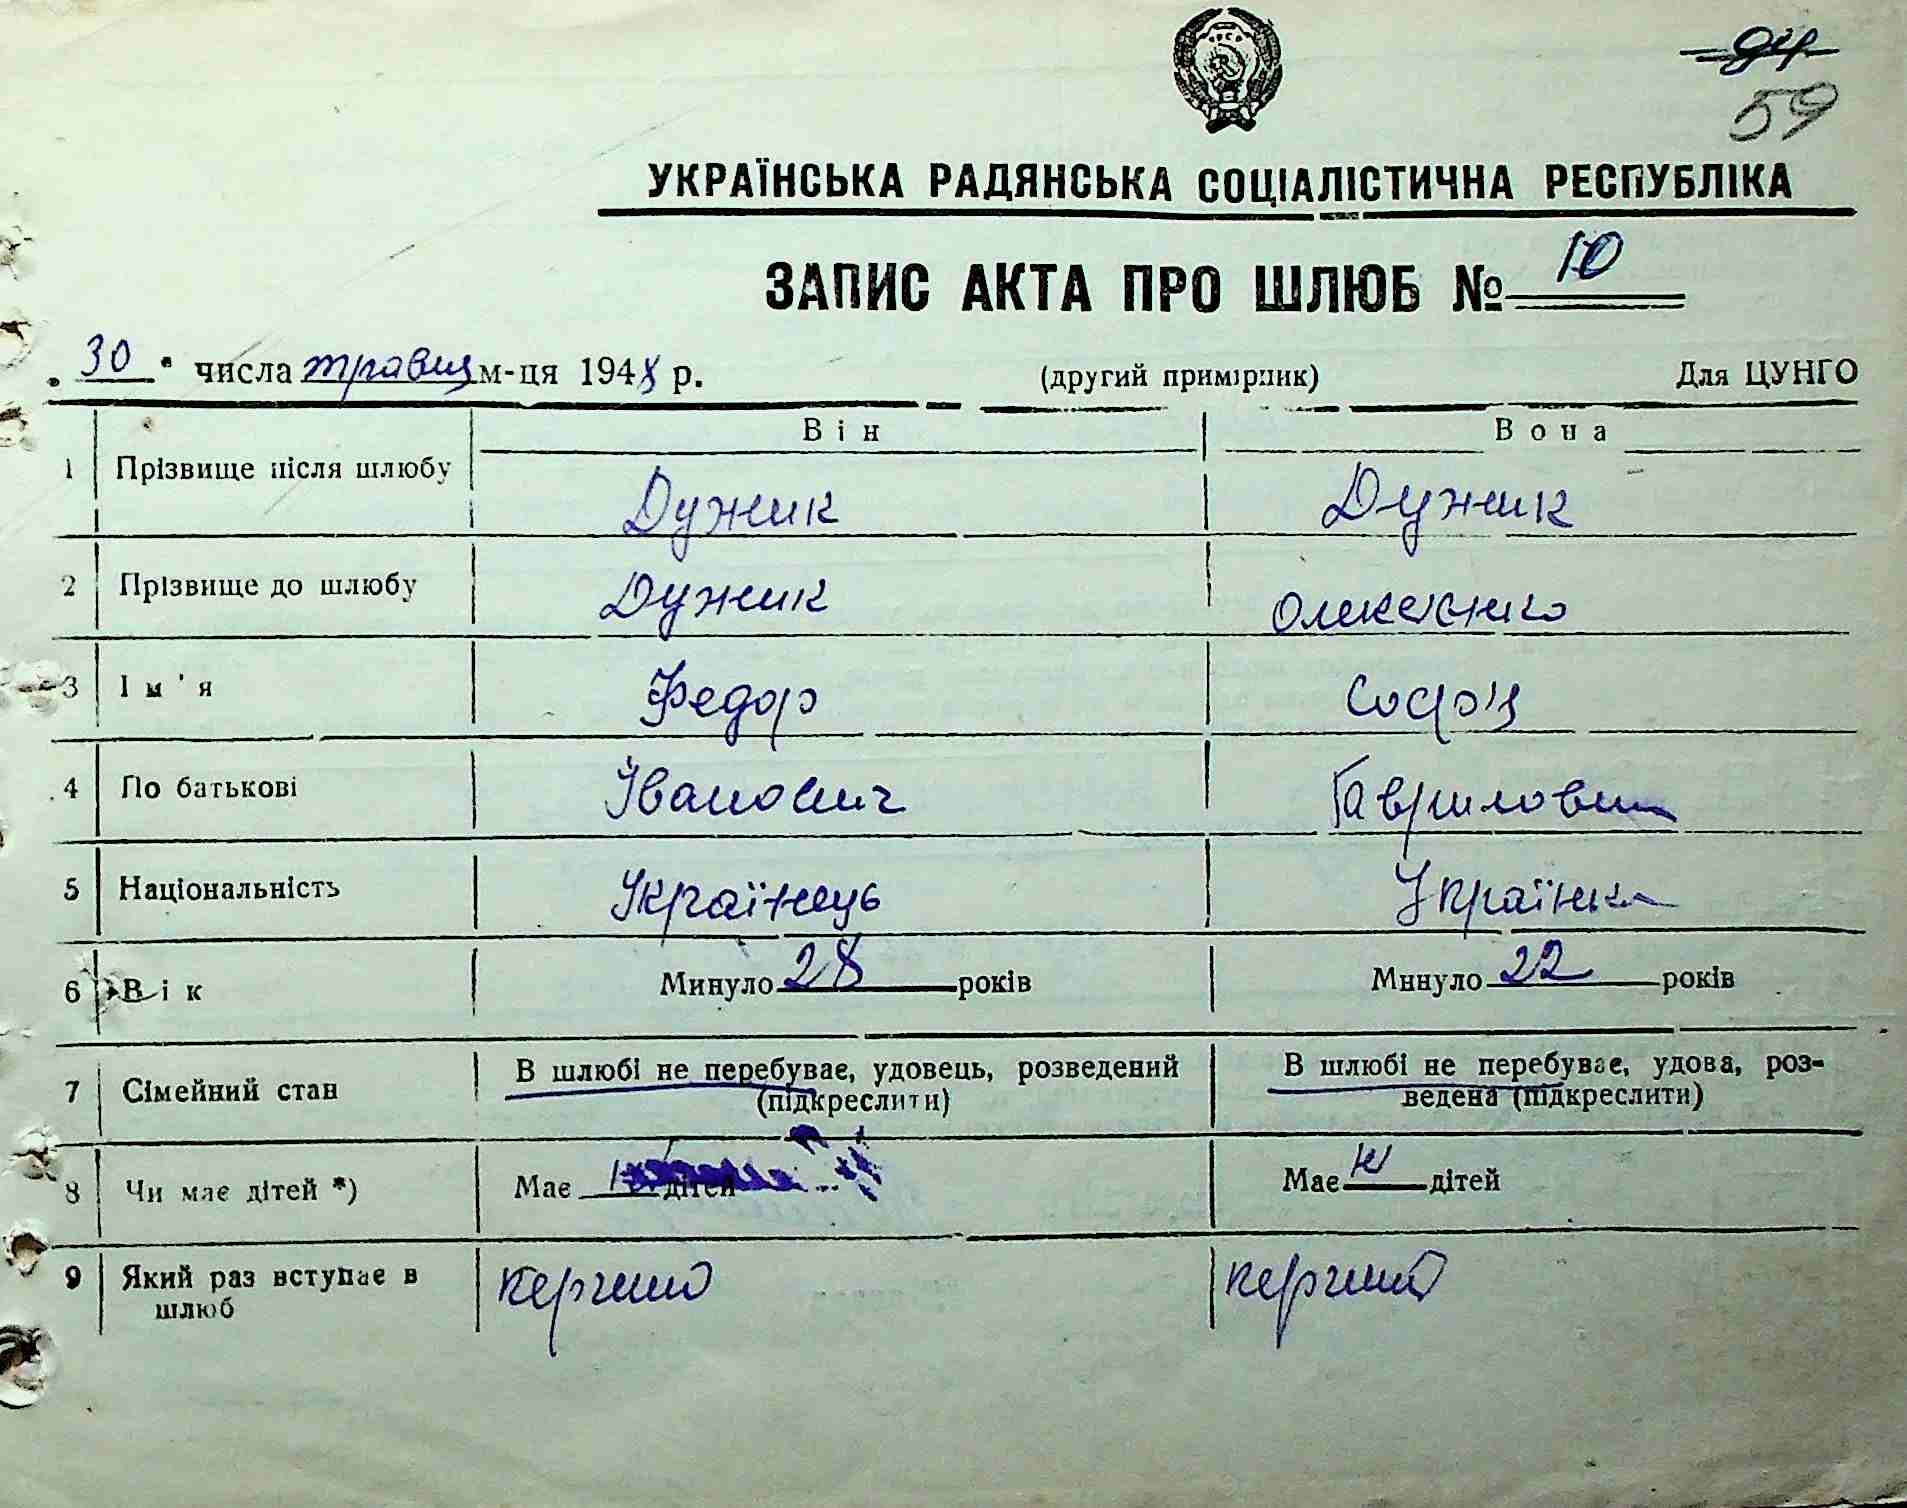 59
УКРАЇНСЬКА РАДЯНСЬКА СОЦІАЛІСТИЧНА РЕСПУБЛІКА
ЗАПИС АКТА ПРО ШЛЮБ № 10
„30“ числа травня м-ця 1948 р. (другий примірник) Для ЦУНГО
Він Вона
1 Прізвище після шлюбу Дужник Дужник
2 Прізвище до шлюбу Дужник
3 Ім'я Федор Софія
4 По батькові Іванович Гавриловн
5 Національність Українець Українка
6 Вік Минуло 28 років Минуло 22 років
7 Сімейний стан В шлюбі не перебуває, удовець, розведений В шлюбі не перебуває, удова, роз-
(підкреслити) ведена (підкреслити)
8 Чи має дітей *) Має дітей Має дітей
9 Який раз вступає в
шлюб